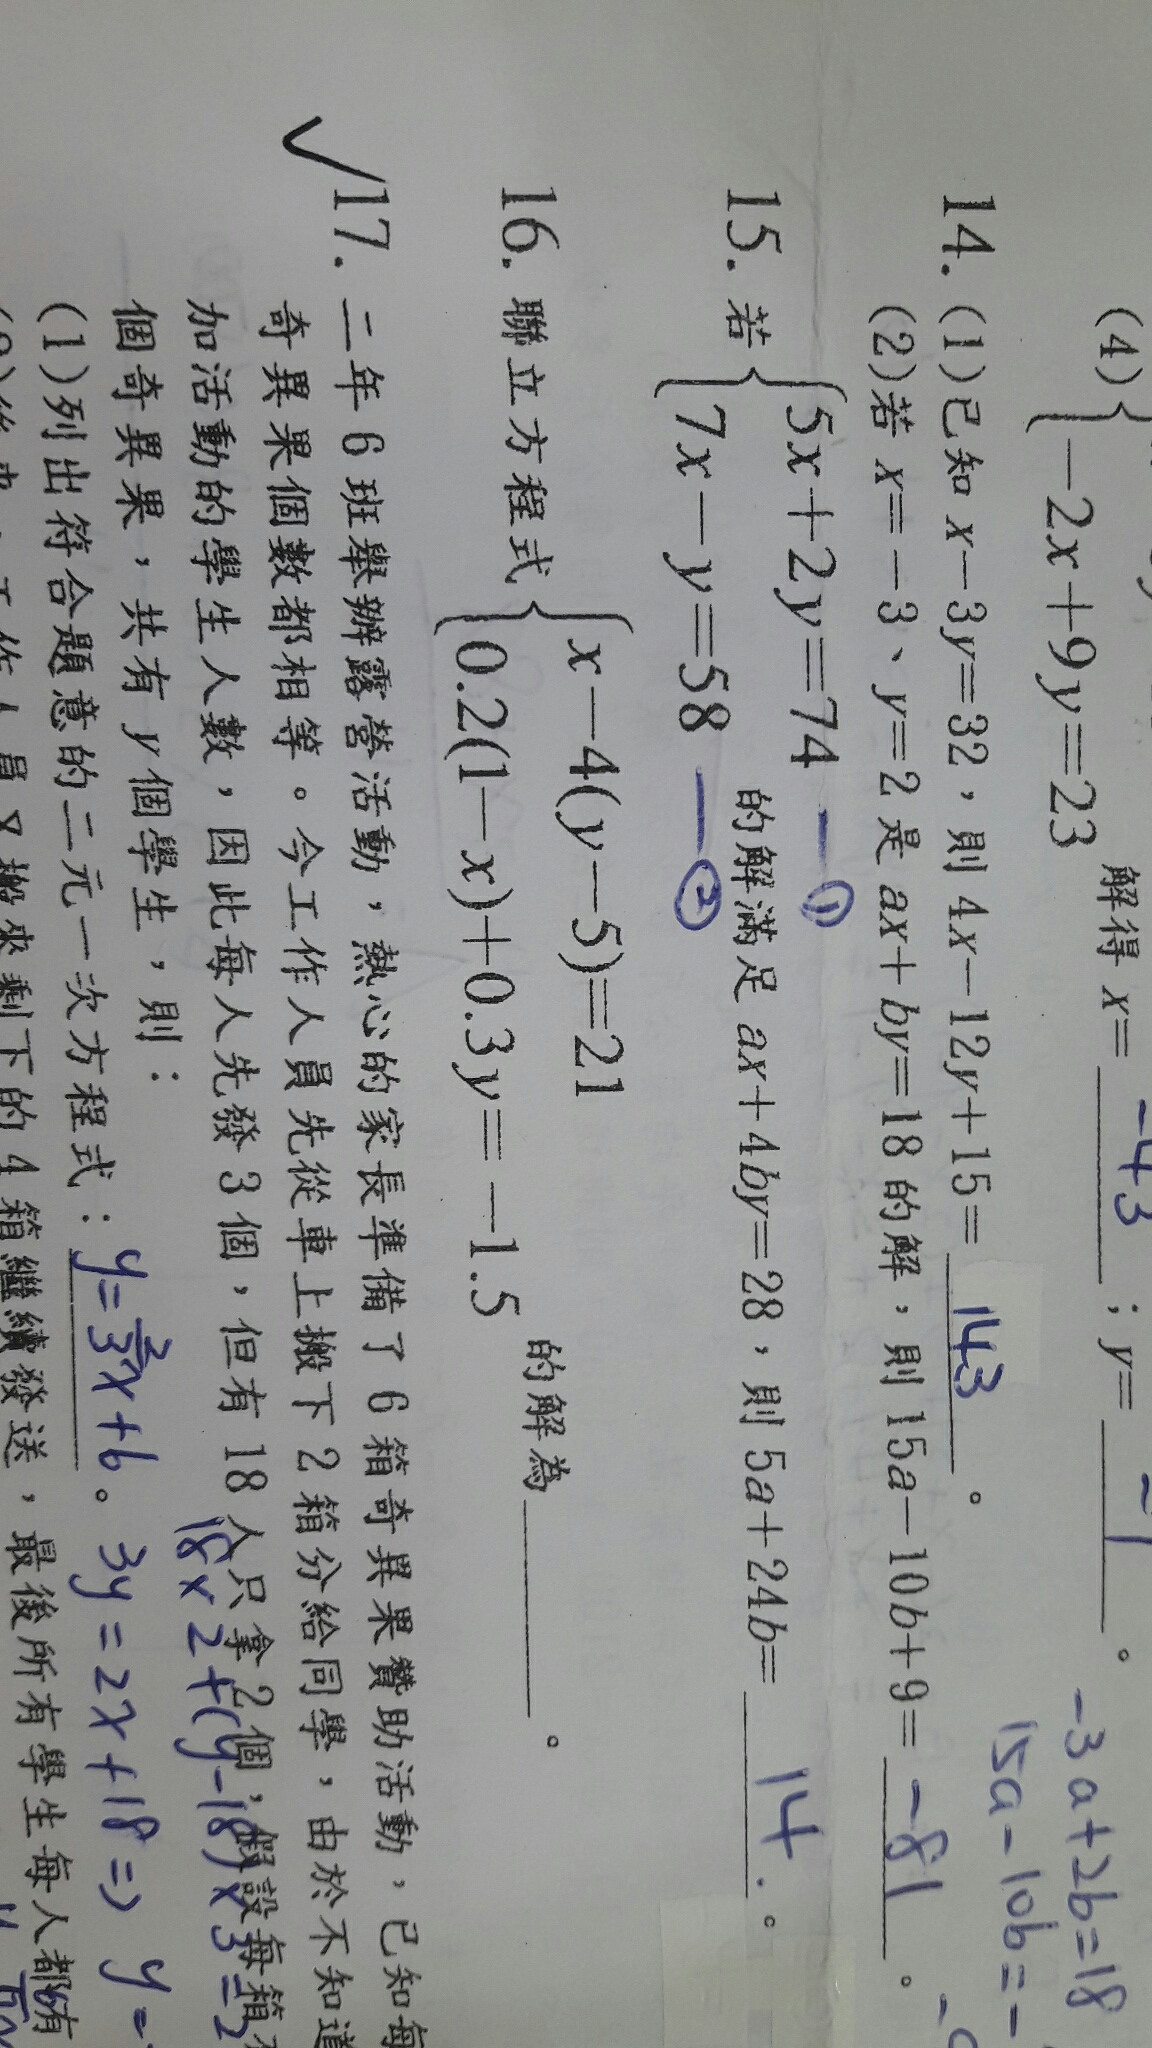 (4)
−2x+9y=23 解得 x= −43 ; y= −1 。
14. (1)已知 x−3y=32，則 4x−12y+15= 143 。
(2)若 x=−3、y=2 是 ax+by=18 的解，則 15a−10b+9= −81 。
−3a+2b=18
15a−10b=−
15. 若 { 5x+2y=74 —①
7x−y=58 —② 的解滿足 ax+4by=28，則 5a+24b= 14 . 。
16. 聯立方程式 { x−4(y−5)=21
0.2(1−x)+0.3y=−1.5 的解為 。
✓17. 二年 6 班舉辦露營活動，熱心的家長準備了 6 箱奇異果贊助活動，已知每
奇異果個數都相等。今工作人員先從車上搬下 2 箱分給同學，由於不知道
加活動的學生人數，因此每人先發 3 個，但有 18 人只拿 2 個，假設每箱
18×2+(y−18)×3=2
個奇異果，共有 y 個學生，則：
(1)列出符合題意的二元一次方程式： y=2/3x+6 。 3y=2x+18⇒ y=
工作人員又搬來剩下的 4 箱繼續發送，最後所有學生每人都有